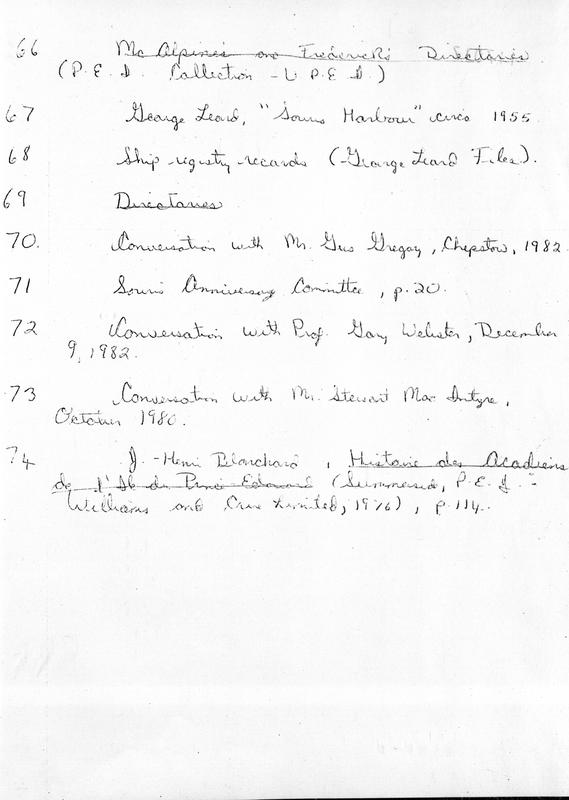 66 McAlpine's and Frederick's Directories
(P.E.I. Collection - U.P.E.I.)
67 George Leard, "Souris Harbour" circa 1955.
68 Ship registry records (George Leard Files).
69 Directories
70. Conversation with Mr. Gus Gregory, Chepstow, 1982.
71 Souris Anniversary Committee, p. 20.
72 Conversation with Prof. Gary Webster, December
9, 1982.
73 Conversation with Mr. Stewart MacIntyre,
October 1980.
74 J.-Henri Blanchard, Histoire des Acadiens
de l'Ile du Prince Edouard (Summerside, P.E.I. -
Williams and Crue Limited, 1976), p. 114.